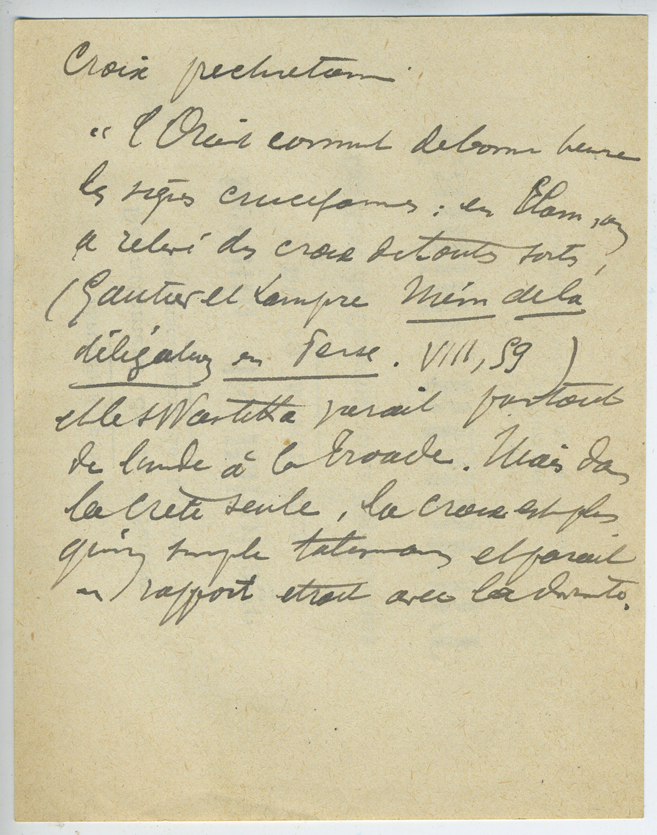 Croix prechretienn
" l'Orient connut de bonne heure
les signes cruciformes : en Elam, on
a relevé des croix de toutes sortes,
(Gautier et Lampre Mém de la
délégation en Perse. VIII, 59 )
et le sWastika parait partout
de l'Inde à la Troade. Mais dans
la Crète seule, la croix est plus
qu'un simple talisman et parait
en rapport étroit avec la divinité.